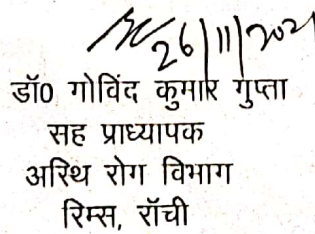 26/11/2021
डॉ0 गोविंद कुमार गुप्ता
सह प्राध्यापक
अस्थि रोग विभाग
रिम्स, रॉची